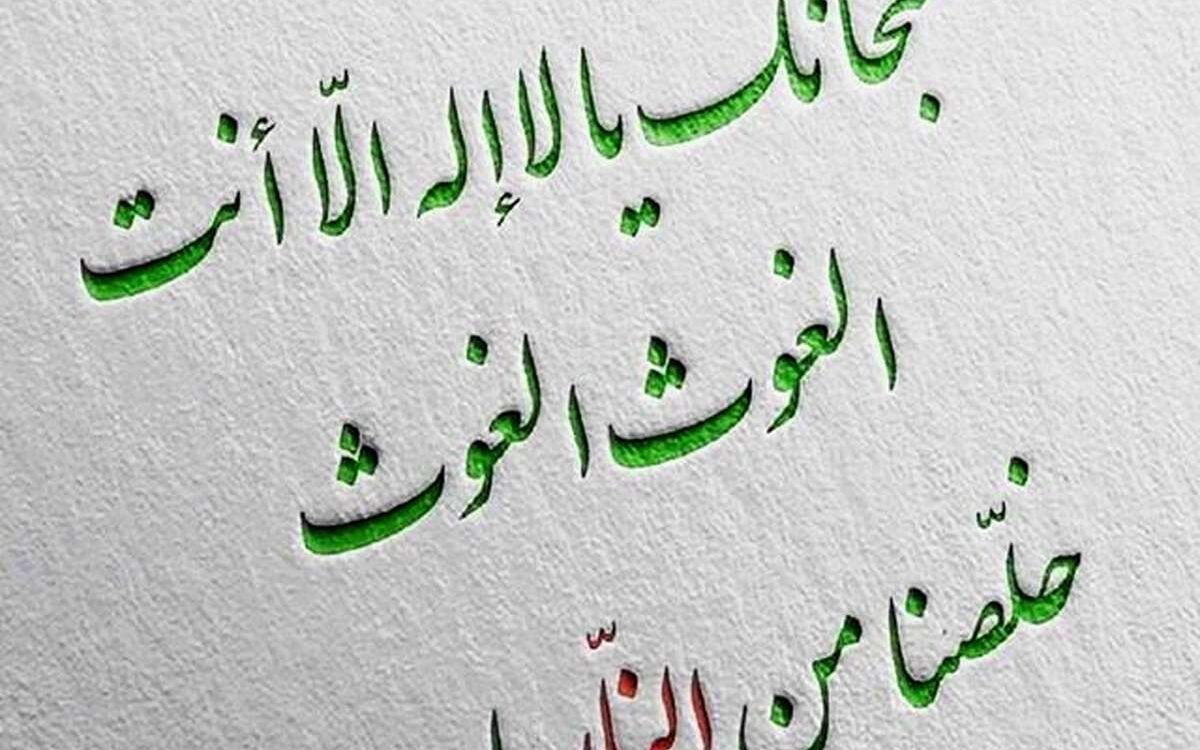 سبحانک یا لا إله الّا أنت
الغوث الغوث
خلّصنا من النّار